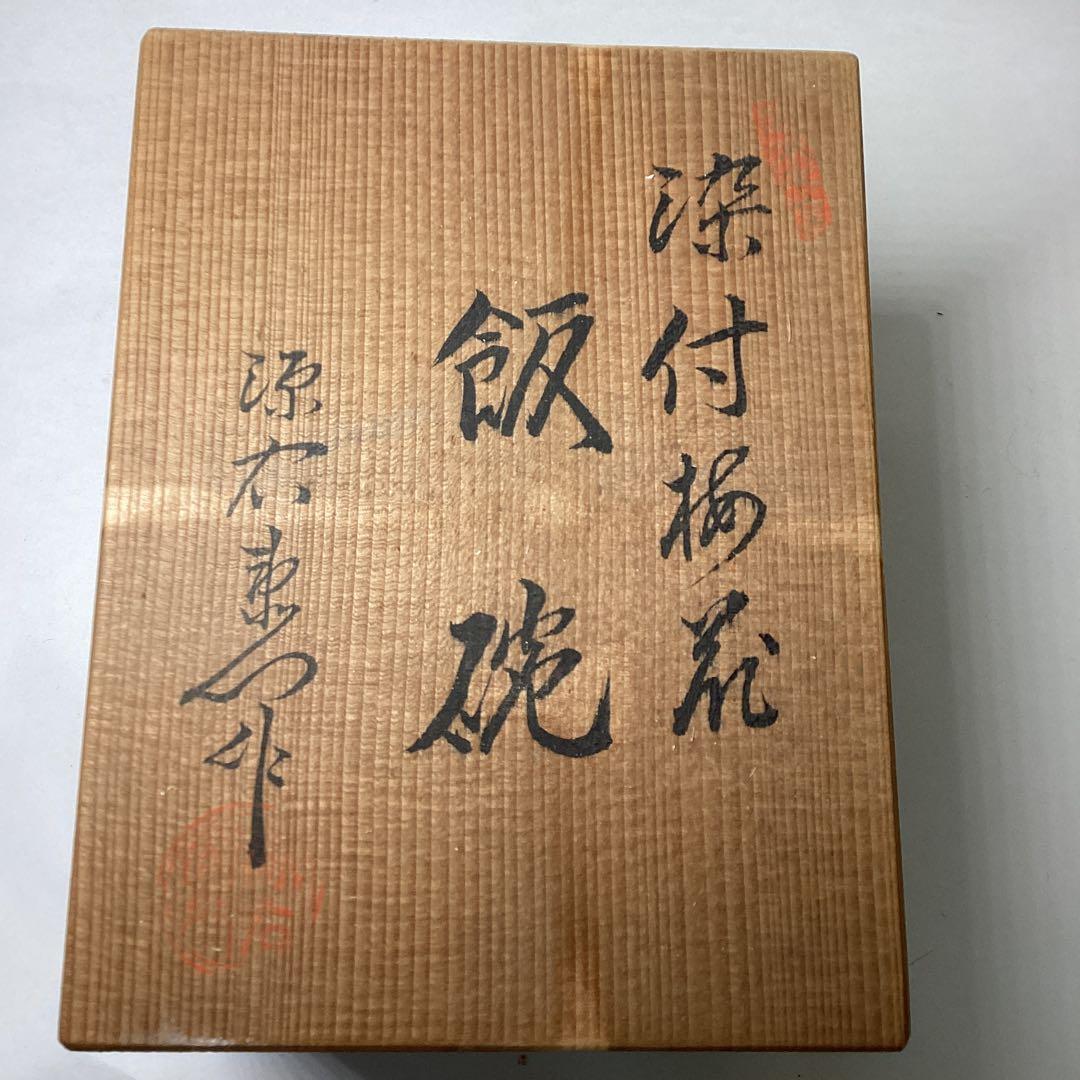 染付梅花
飯碗
源右衛門作